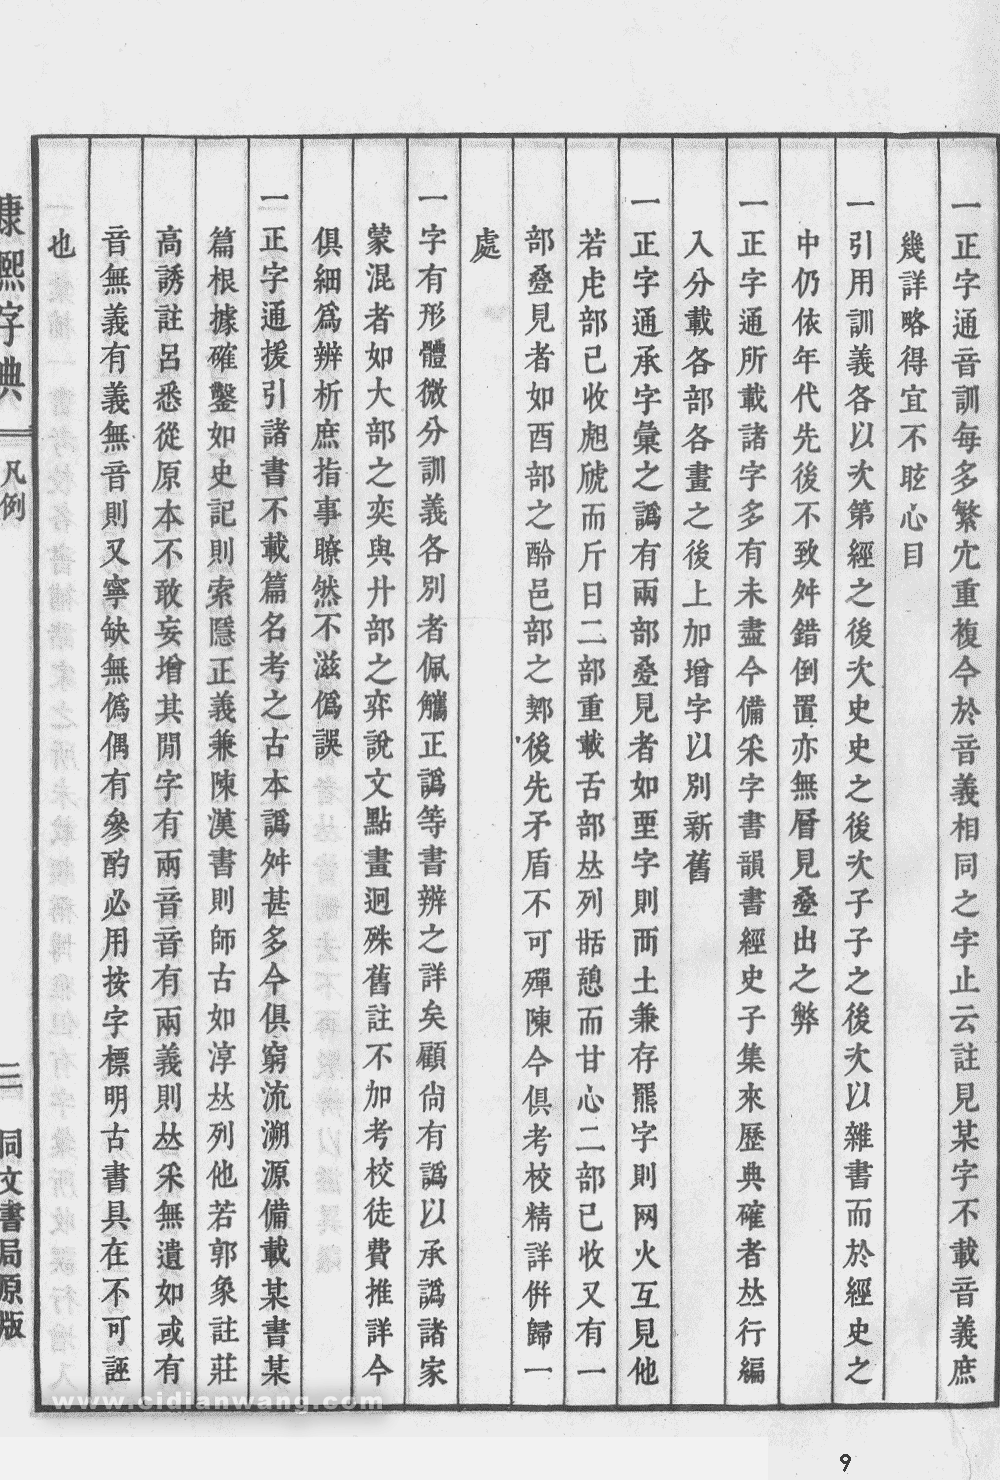 一正字通音訓每多繁宂重複今於音義相同之字止云註見某字不載音義庶
幾詳略得宜不眩心目
一引用訓義各以次第經之後次史史之後次子子之後次以雜書而於經史之
中仍依年代先後不致舛錯倒置亦無層見疊出之弊
一正字通所載諸字多有未盡今備采字書韻書經史子集來歷典確者𠀤行編
入分載各部各畫之後上加增字以別新舊
一正字通承字彙之譌有兩部疊見者如垔字則襾土兼存羆字則网火互見他
若虍部已收虒虓而斤日二部重載舌部𠀤列甛憩而甘心二部已收又有一
部疊見者如酉部之酧邑部之鄸後先矛盾不可殫陳今俱考校精詳倂歸一
處
一字有形體微分訓義各別者佩觿正譌等書辨之詳矣顧尙有譌以承譌諸家
蒙混者如大部之奕與廾部之弈說文點畫迥殊舊註不加考校徒費推詳今
俱細爲辨析庶指事瞭然不滋僞誤
一正字通援引諸書不載篇名考之古本譌舛甚多今俱窮流溯源備載某書某
篇根據確鑿如史記則索隱正義兼陳漢書則師古如淳𠀤列他若郭象註莊
高誘註呂悉從原本不敢妄增其閒字有兩音音有兩義則𠀤采無遺如或有
音無義有義無音則又寧缺無僞偶有參酌必用按字標明古書具在不可誣
也
康熙字典
凡例
三
同文書局原版
www.cidianwang.com
9